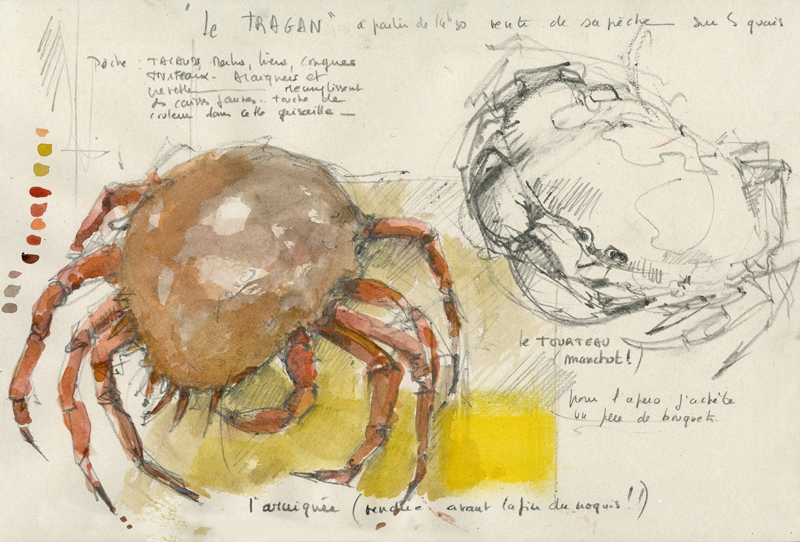 "Le TRAGAN" à partir de 14h30 vente de sa pêche sur les quais
Pêche : TACAUDS, lieus, congues
tourteaux - Araignées et
remplissent
des caisses jaunes - touche de
couleur dans cette grisaille -
le TOURTEAU
(manchot!)
pour l'apéro j'achète
un peu de bouquets.
l'araignée (vendue avant la fin du croquis!!)